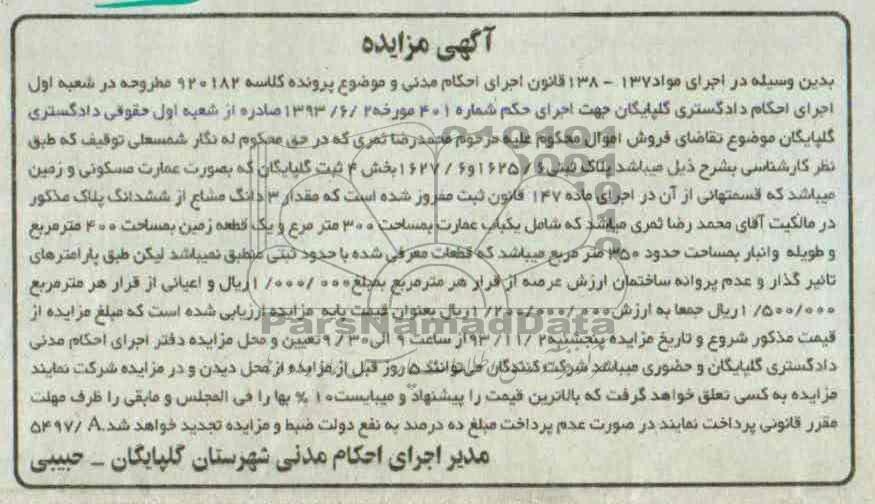 آگهی مزایده
بدین وسیله در اجرای مواد۱۳۷ - ۱۳۸قانون اجرای احکام مدنی و موضوع پرونده کلاسه ۹۲۰۱۸۲ مطروحه در شعبه اول
اجرای احکام دادگستری گلپایگان جهت اجرای حکم شماره ۴۰۱ مورخه۱۳۹۳/۶/۲صادره از شعبه اول حقوقی دادگستری
گلپایگان موضوع تقاضای فروش اموال محکوم علیه مرحوم محمدرضا ثمری که در حق محکوم له نگار شمسعلی توقیف که طبق
نظر کارشناسی بشرح ذیل میباشد پلاک ثبتی۶ / ۱۶۲۵و۶ / ۱۶۲۷بخش ۴ ثبت گلپایگان که بصورت عمارت مسکونی و زمین
میباشد که قسمتهائی از آن در اجرای ماده ۱۴۷ قانون ثبت مفروز شده است که مقدار ۳ دانگ مشاع از ششدانگ پلاک مذکور
در مالکیت آقای محمد رضا ثمری میباشد که شامل یکباب عمارت بمساحت ۳۰۰ متر مربع و یک قطعه زمین بمساحت ۴۰۰ مترمربع
و طویله وانبار بمساحت حدود ۳۵۰ متر مربع میباشد که قطعات معرفی شده با حدود ثبتی منطبق نمیباشد لیکن طبق پارامترهای
تاثیر گذار و عدم پروانه ساختمان ارزش عرصه از قرار هر مترمربع بمبلغ۱/۰۰۰/۰۰۰ریال و اعیانی از قرار هر مترمربع
۱/۵۰۰/۰۰۰ریال جمعا به ارزش ۱/۲۰۰/۰۰۰/۰۰۰ریال بعنوان قیمت پایه مزایده ارزیابی شده است که مبلغ مزایده از
قیمت مذکور شروع و تاریخ مزایده پنجشنبه۹۳/۱۱/۲از ساعت ۹ الی۹/۳۰تعیین و محل مزایده دفتر اجرای احکام مدنی
دادگستری گلپایگان و حضوری میباشد شرکت کنندگان می‌توانند ۵ روز قبل از مزایده از محل دیدن و در مزایده شرکت نمایند
مزایده به کسی تعلق خواهد گرفت که بالاترین قیمت را پیشنهاد و میبایست۱۰ % بها را فی المجلس و مابقی را ظرف مهلت
مقرر قانونی پرداخت نمایند در صورت عدم پرداخت مبلغ ده درصد به نفع دولت ضبط و مزایده تجدید خواهد شد.۵۴۹۷/A
مدیر اجرای احکام مدنی شهرستان گلپایگان – حبیبی
ParsNamadData